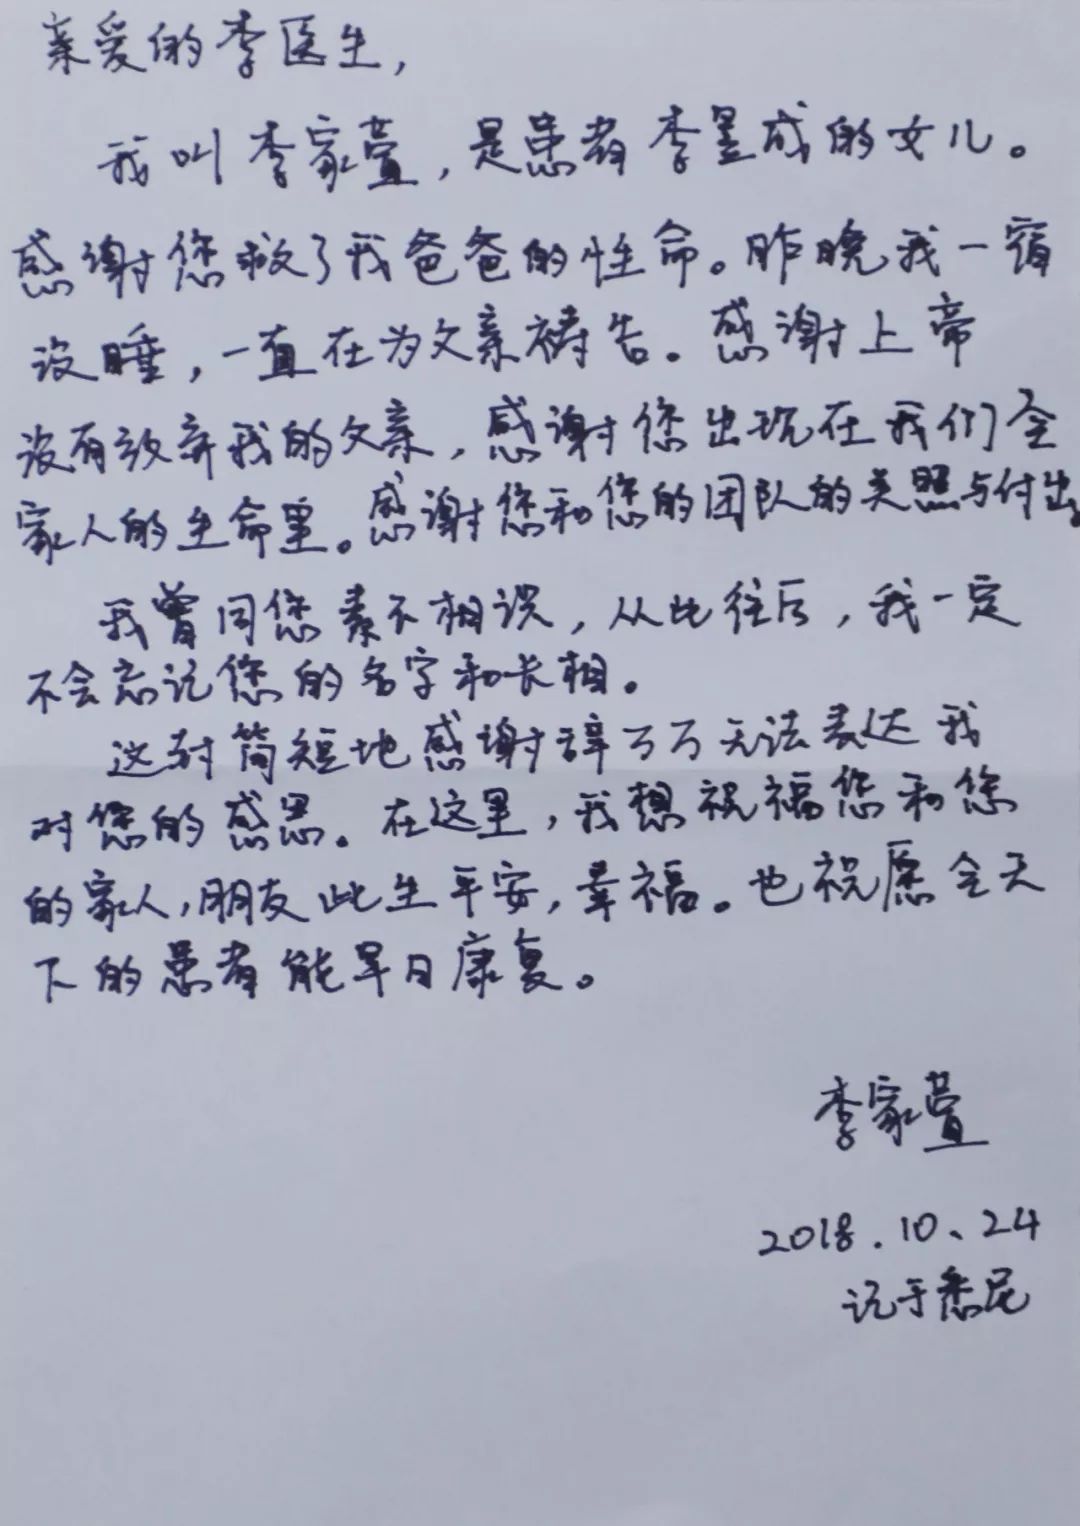 亲爱的李医生,
我叫李家萱,是患者李昱成的女儿。
感谢您救了我爸爸的性命。昨晚我一宿
没睡,一直在为父亲祷告。感谢上帝
没有放弃我的父亲,感谢您出现在我们全
家人的生命里。感谢您和您的团队的关照与付出。
我曾同您素不相识,从此往后,我一定
不会忘记您的名字和长相。
这封简短地感谢辞万万无法表达我
对您的感恩。在这里,我想祝福您和您
的家人,朋友此生平安,幸福。也祝愿全天
下的患者能早日康复。
李家萱
2018.10、24
记于悉尼